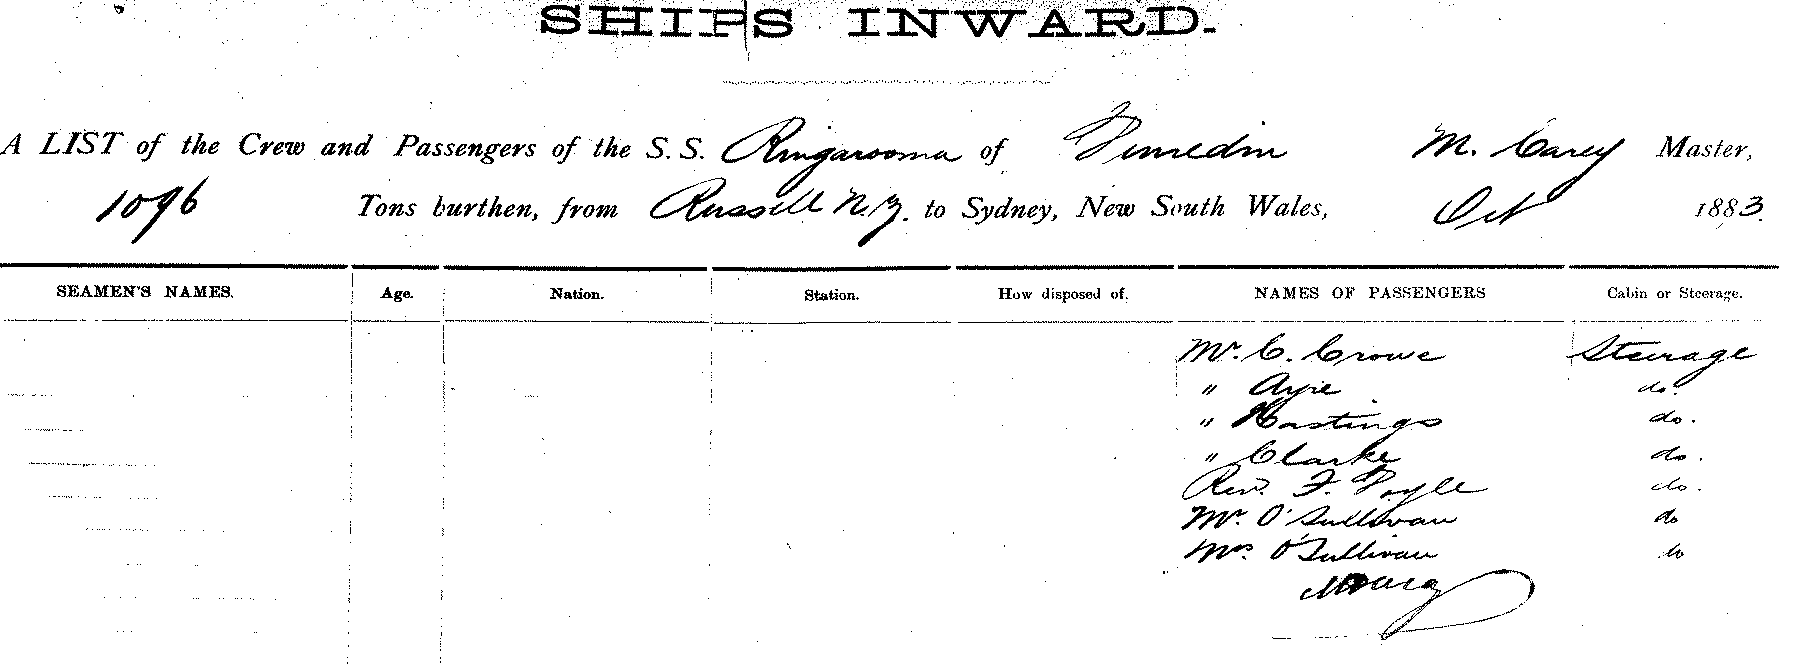 SHIPS INWARD.
A LIST of the Crew and Passengers of the S.S. Ringarooma of Dunedin M. Carey Master,
1096 Tons burthen, from Russell N.Z. to Sydney, New South Wales, Oct 1883.
SEAMEN'S NAMES. Age. Nation. Station. How disposed of. NAMES OF PASSENGERS Cabin or Steerage.
Mr. C. Crowe Steerage
" Ayre do.
" Hastings do.
" Clarke do.
Rev. F. do.
Mr. O'Sullivan do
Mrs. O'Sullivan do